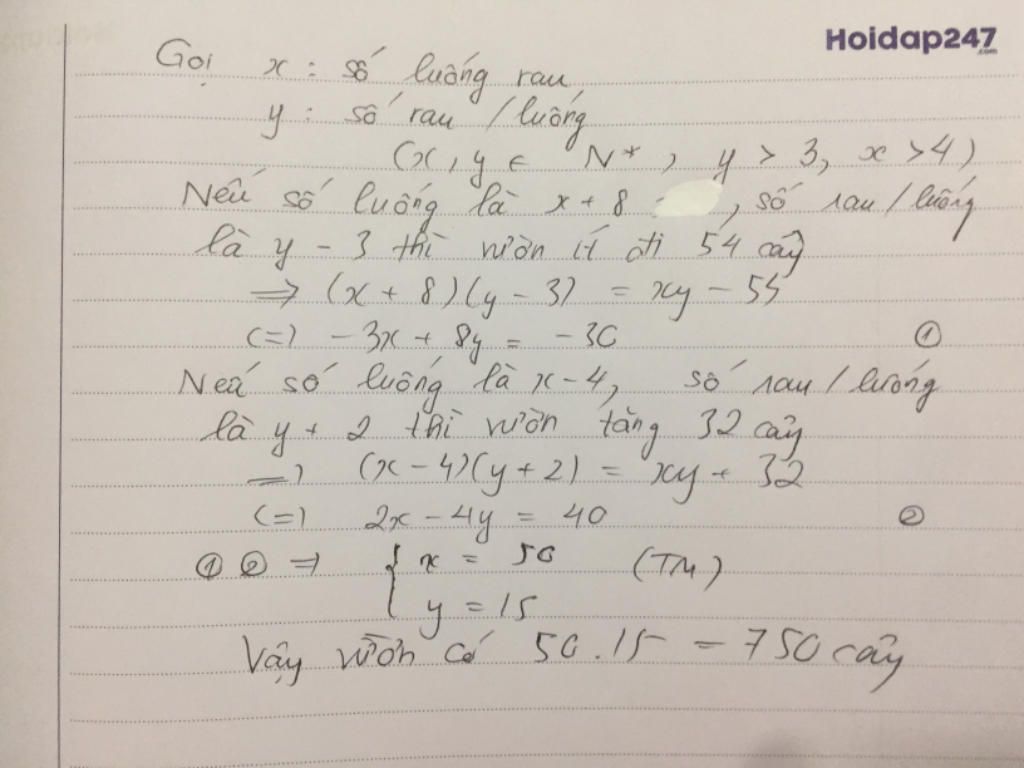 Hoidap247
.com
Gọi x : số luống rau
y : số rau / luống
(x, y ∈ N*, y > 3, x > 4)
Nếu số luống là x + 8 , số rau / luống
là y - 3 thì vườn ít đi 54 cây
=> (x + 8)(y - 3) = xy - 54
<=> -3x + 8y = -30 ①
Nếu số luống là x - 4, số rau / luống
là y + 2 thì vườn tăng 32 cây
=> (x - 4)(y + 2) = xy + 32
<=> 2x - 4y = 40 ②
① ② => { x = 50 (TM)
y = 15
Vậy vườn có 50 . 15 = 750 cây